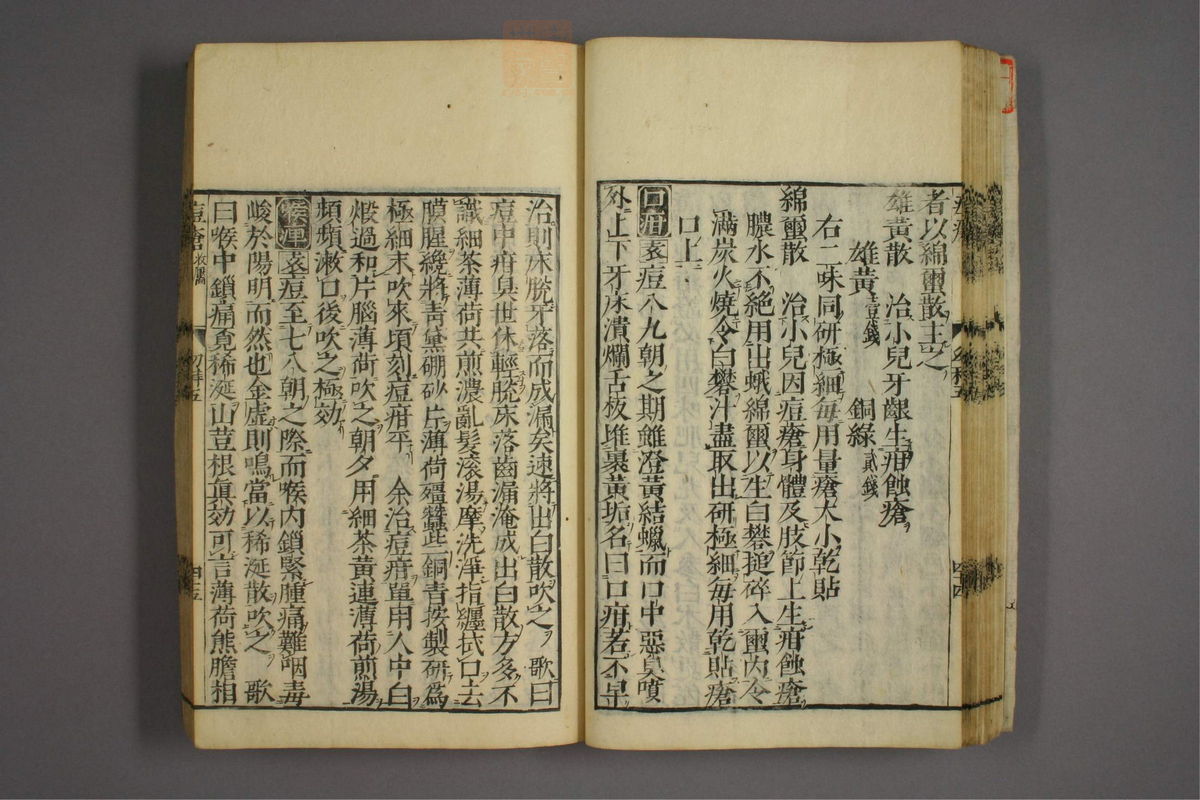 者以綿蠒散主之
雄黃散　治小兒牙齦生疳蝕瘡
雄黃壹錢　銅綠貳錢
右二味同研極細每用量瘡大小乾貼
綿蠒散　治小兒因痘瘡身體及肢節上生疳蝕瘡
膿水不絕用出蛾綿蠒以生白礬搥碎入蠒內令
滿炭火燒令白礬汁盡取出研極細每用乾貼瘡
口上
口疳 痘八九朝之期雖澄黃結蠟而口中惡臭噴
外上下牙床潰爛舌板堆裹黃垢名曰口疳若不早
治則床脫牙落而成漏矣速將出白散吹之　歌曰
痘中疳臭世休輕脫床落齒漏淹成出白散方多不
識細茶薄荷共煎濃亂髮滾湯摩洗淨指纏拭口去
膜腥纔將青黛硼砂片薄荷殭蠶銅青按製研爲
極細末吹來頃刻痘疳平　余治痘疳單用人中白
煅過和片腦薄荷吹之朝夕用細茶黃連薄荷煎湯
頻頻漱口後吹之極効
喉 痘至七八朝之際而喉內鎖緊腫痛難咽毒
峻於陽明而然也金虛則鳴當以稀涎散吹之　歌
曰喉中鎖痛竟稀涎山荳根眞効可言薄荷熊膽相
痘瘡
四四
四五